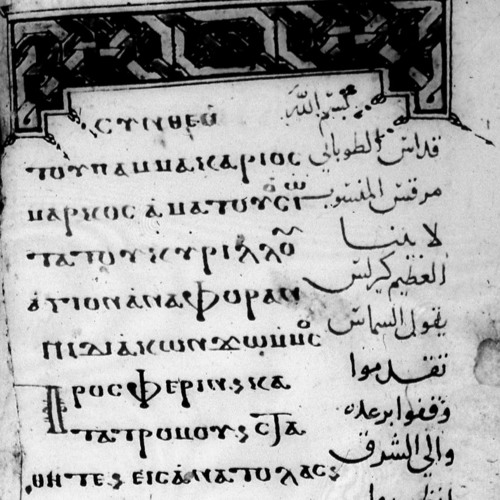 ⲥⲩⲛⲑⲉⲱ
ⲧⲟⲩⲡⲁⲙⲙⲁⲕⲁⲣⲓⲟⲥ
ⲙⲁⲣⲕⲟⲥ ⲁⲡⲁⲧⲟⲩⲥ
ⲧⲁⲧⲟⲩⲕⲩⲣⲓⲗⲗⲟ
ⲁⲅⲓⲟⲛⲁⲛⲁⲫⲟⲣⲁⲛ
ⲡⲓⲇⲓⲁⲕⲱⲛϫⲱⲙⲙⲟⲥ
ⲡⲣⲟⲥⲫⲉⲣⲓⲛ ⲕⲁ
ⲧⲁⲧⲣⲟⲡⲟⲩⲥ ⲥⲧⲁ
ⲑⲏⲧⲉⲥ ⲉⲓⲥⲁⲛⲁⲧⲟⲗⲁⲥ
بسم الله
قداس الطوباني
مرقس المنسوب
لابينا
العظيم كيرلس
يقول الشماس
تقدموا
وقفوا برعده
والى الشرق